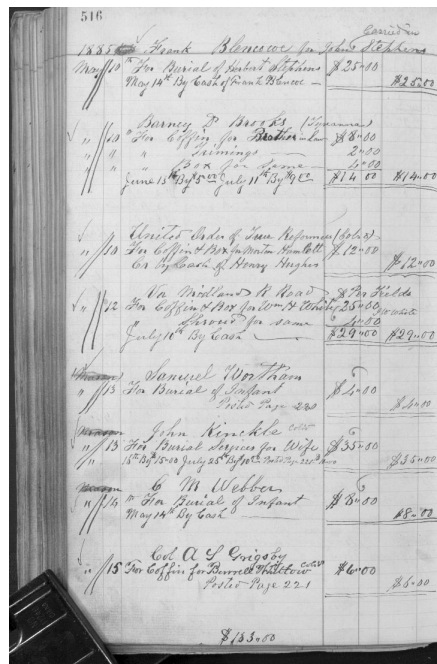 516
Carried on
1885 Frank Blencowe for John Stephens
May 10th For Burial of Herbert Stephens $25.00
May 14th By Cash of Frank Blencoe — $25.00
Barney D Brooks
" 10 " For Coffin for Brother $8.00
" " " Trimings 2.00
" " " Box for same 4.00
June 13th By $5.00 July 11th By $9.00 $14.00 $14.00
United Order of True Reformers
" 10 For Coffin & Box for $12.00
Cr by Cash of Henry Hughes $12.00
Va Midland R Road Per Fields
" 12 For Coffin & Box for Wm H White $25.00
" Shroud for same 4.00
July 10th By Cash $29.00 $29.00
Samuel Wortham
" 13 For Burial of Infant $4.00
Posted Page 220 $4.00
John Kinckle Cold
" 13 For Burial Services for Wife $35.00
15.00 July 25th By 10 $35.00
C M Webber
" 14th For Burial of Infant $8.00
May 14th By Cash $8.00
Col A S Grigsby
" 15 For Coffin for Cold $6.00
Posted Page 221 $6.00
$133.00